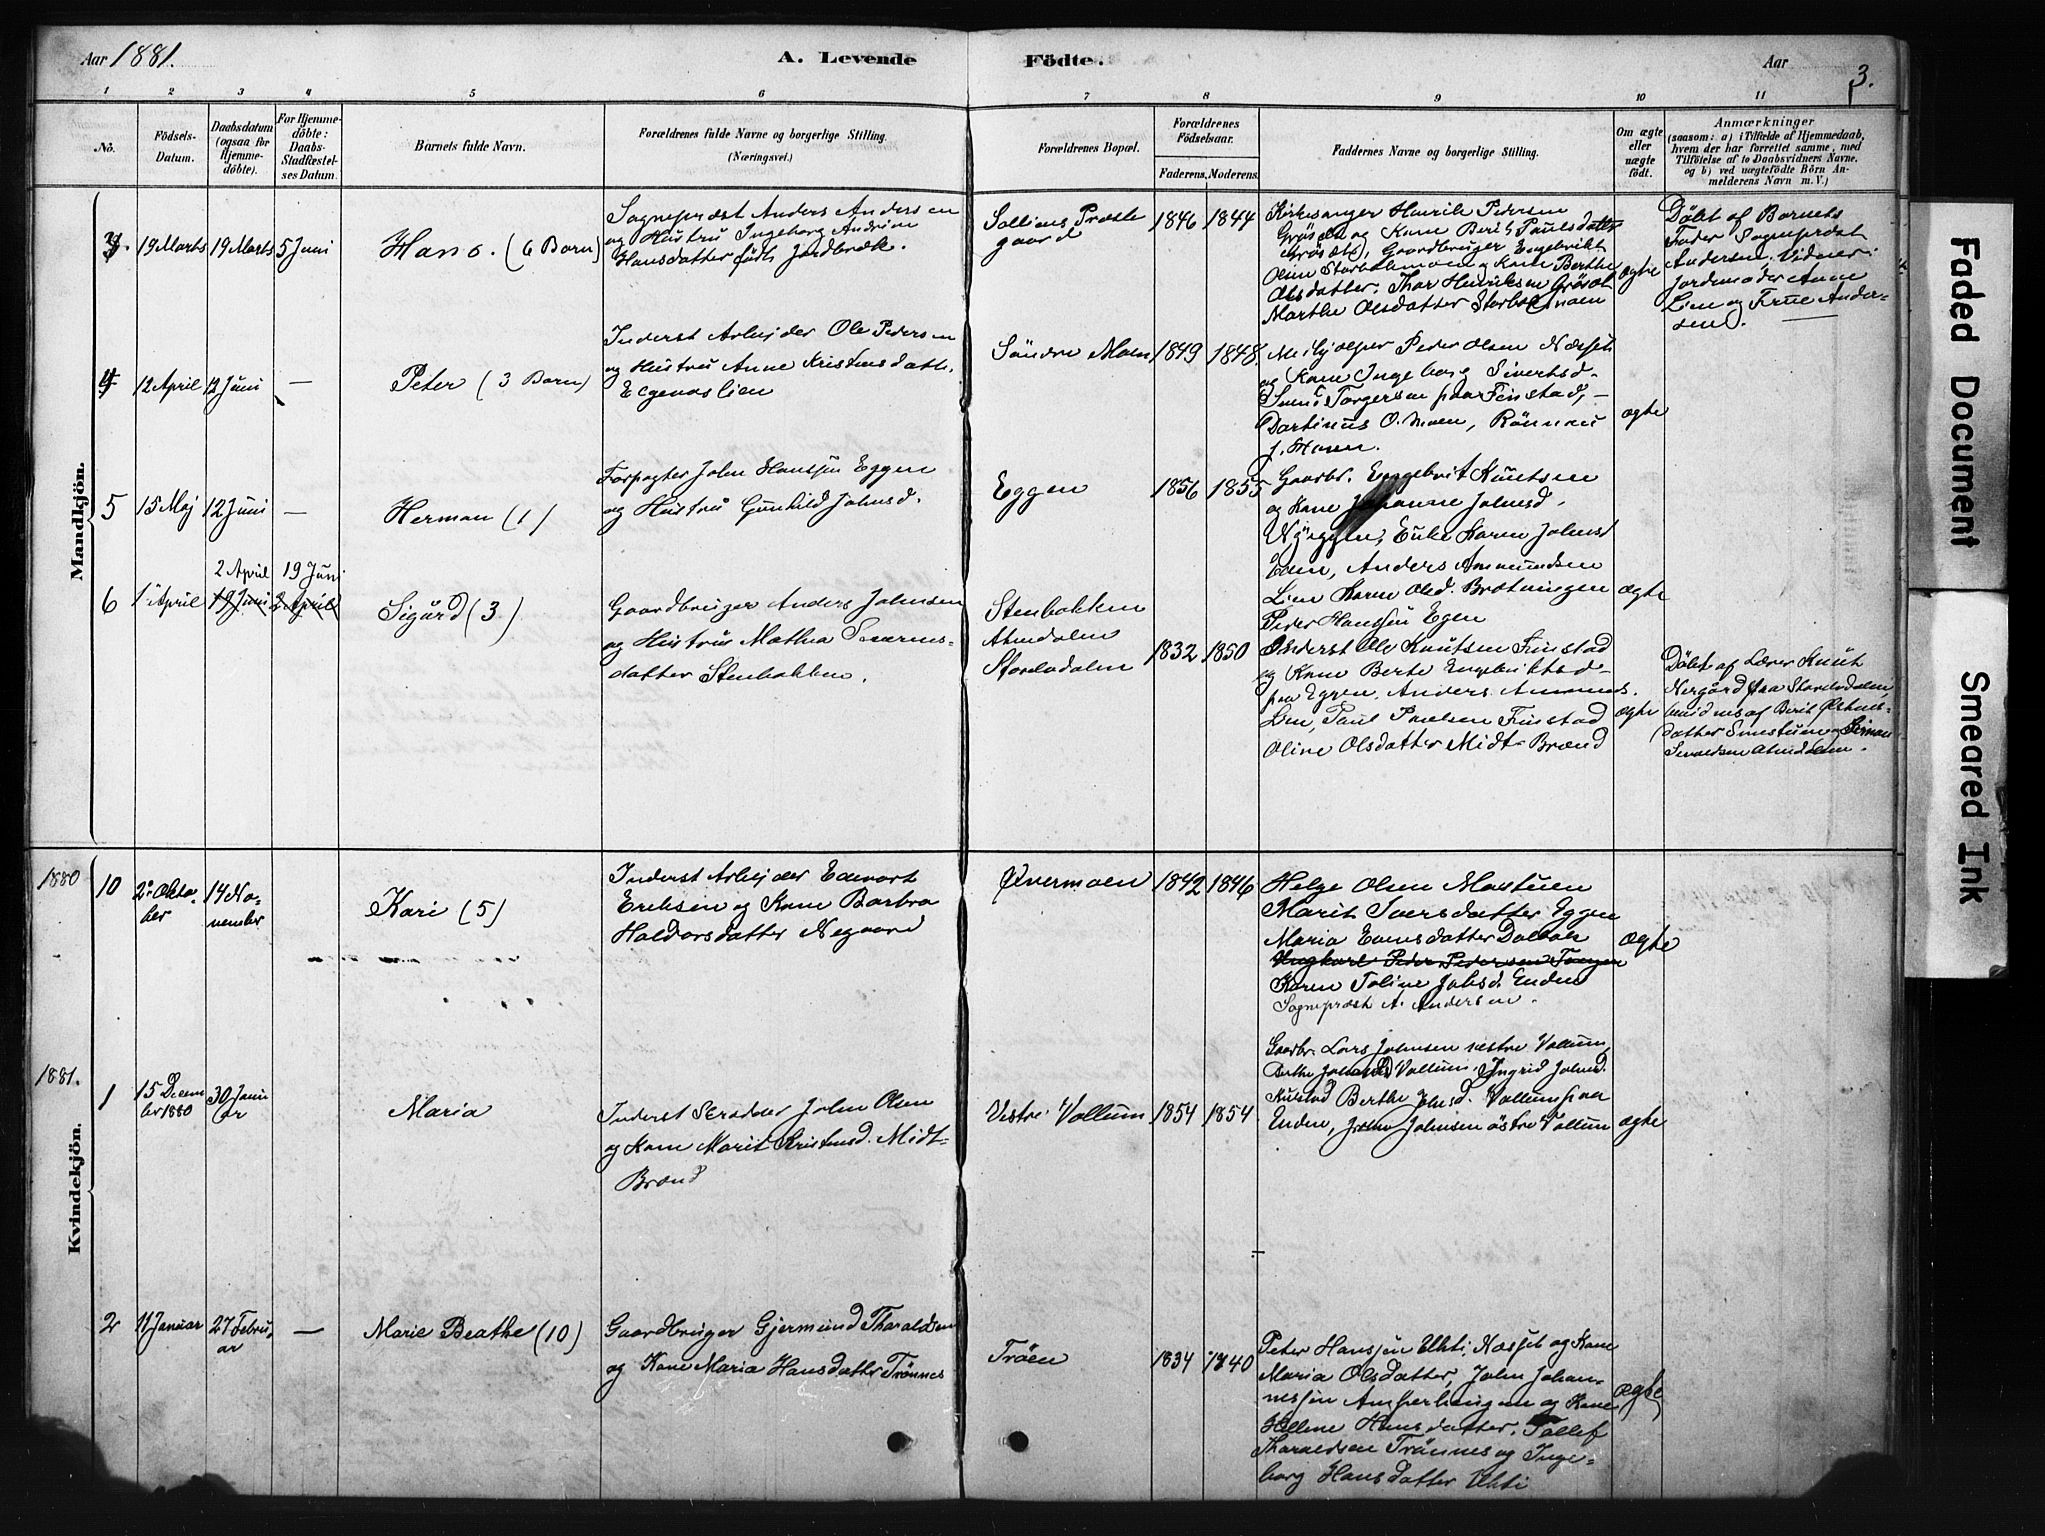 Aar 1881.
A. Levende
Födte.
Aar
3.
1 2 3 4 5 6 7 8 9 10 11
No.
Födsels-
Datum.
Daabsdatum
(ogsaa for
Hjemme-
döbte).
For Hjemme-
döbte:
Daabs-
Stadfæstel-
ses Datum.
Barnets fulde Navn.
Forældrenes fulde Navne og borgerlige Stilling.
(Næringsvei.)
Forældrenes Bopæl.
Forældrenes
Födselsaar.
Faderens. Moderens.
Faddernes Navne og borgerlige Stilling.
Om ægte
eller
uægte
födt.
Anmærkninger
(saasom: a) i Tilfælde af Hjemmedaab,
hvem der har forrettet samme, med
Tilföielse af to Daabsvidners Navne,
og b) ved uægtefödte Börn An-
melderens Navn m. V.)
Mandkjön.
3. 19 Marts 19 Marts 5 Juni
Hans. (6 Barn)
Sognepræst Anders Andersen
og Hustru Ingeborg Andrine
Hansdatter født Jordbræk.
Solliens Præste
gaard
1846 1844
Kirkesanger Henrik Pedersen
Grøsæt og Kone Berit Paulsdatter
Grøsæt, Gaardbruger Engebrikt
Olsen Storbækmoen og Kone Berthe
Olsdatter, Thor Henriksen Grøsæt
Marthe Olsdatter Storbækmoen
ægte
Döbt af Barnets
Fader Sognepræst
Andersen. Vidner:
Jordemoder Anne
Lien og Frue Ander-
sen.
4 12 April 12 Juni —
Peter (3 Barn)
Inderst Arbejder Ole Pedersen
og Hustru Anne Kristensdatt.
Elgevaslien
Söndre Moen
1849 1848.
Peder Olsen Næsset
og Kone Ingeborg Sivertsd.
Torgersen paa Finstad,
O. Moen, Rönnau
J. Moen.
ægte
5 15 Maj 12 Juni —
Herman (1)
Forpagter John Hansen Eggen
og Hustru Gunhild Johnsd.
Eggen
1856 1855
Gaardbr. Engebrit Knutsen
og Kone Johanne Johnsd.
Nyeggen, Enke Karen Johnsd
Eden, Anders Ammundsen
Lien Karen Olsd. Brotningen
Peder Hansen Egen
ægte
2 April 19 Juni
6 1 April 19 Juni 2 April
Sigurd (3)
Gaardbruger Anders Johnsen
og Hustru Mathea
datter Stenbakken.
Stenbakken
Atnedalen
Storelvdalen
1832 1850
Inderst Ole Knutsen Finstad
og Kone Berte Engebriktsd.
paa Eggen, Anders Ammunds.
Lien, Paul Paulsen Finstad
Oline Olsdatter Midt-Brænd
ægte
Döbt af Lærer Knut
Nergård fra Storelvdalen,
bevidnes af Berit Østens-
datter og Simen
Atnedalen.
Kvindekjön.
1880
10 2. Okto-
ber
14 No-
vember
Kari (5)
Inderst Arbejder Edevart
Eriksen og Kone Barbro
Haldorsdatter Negaard
Øvermoen
1842 1846
Helge Olsen Mostuen
Marit Iversdatter Eggen
Maria Evensdatter Dalbak
Ungkarl Peder Pedersen Tangen
Karen Toline Johsd. Enden
Sognepræst A. Andersen.
ægte
1881.
1 15 Decem
ber 1880
30 Janu
ar
Maria
Inderst Skrædder John Olsen
og Kone Marit Kristensd. Midt-
Brænd
Vestre Vollum
1854 1854
Gaardbr. Lars Johnsen vestre Vollum,
Berthe Johnsd. Vollum, Ingrid Johnsd.
Berthe Johnsd. Vollum paa
Enden, John Johnsen östre Vollum
ægte
2 11 Januar 27 Febru-
ar —
Marie Beathe (10)
Gaardbruger Gjermund Tharaldsen
og Kone Maria Hansdatter Trønnes
Trøen
1834 1840
Peter Hansen Uhti Næsset og Kone
Maria Olsdatter, John Johan-
nessen Amperhaugen og Kone
Hellene Hansdatter, Tollef
Tharaldsen Trønnes og Inge-
borg Hansdatter Uhti
ægte
Faded Document
Smeared Ink